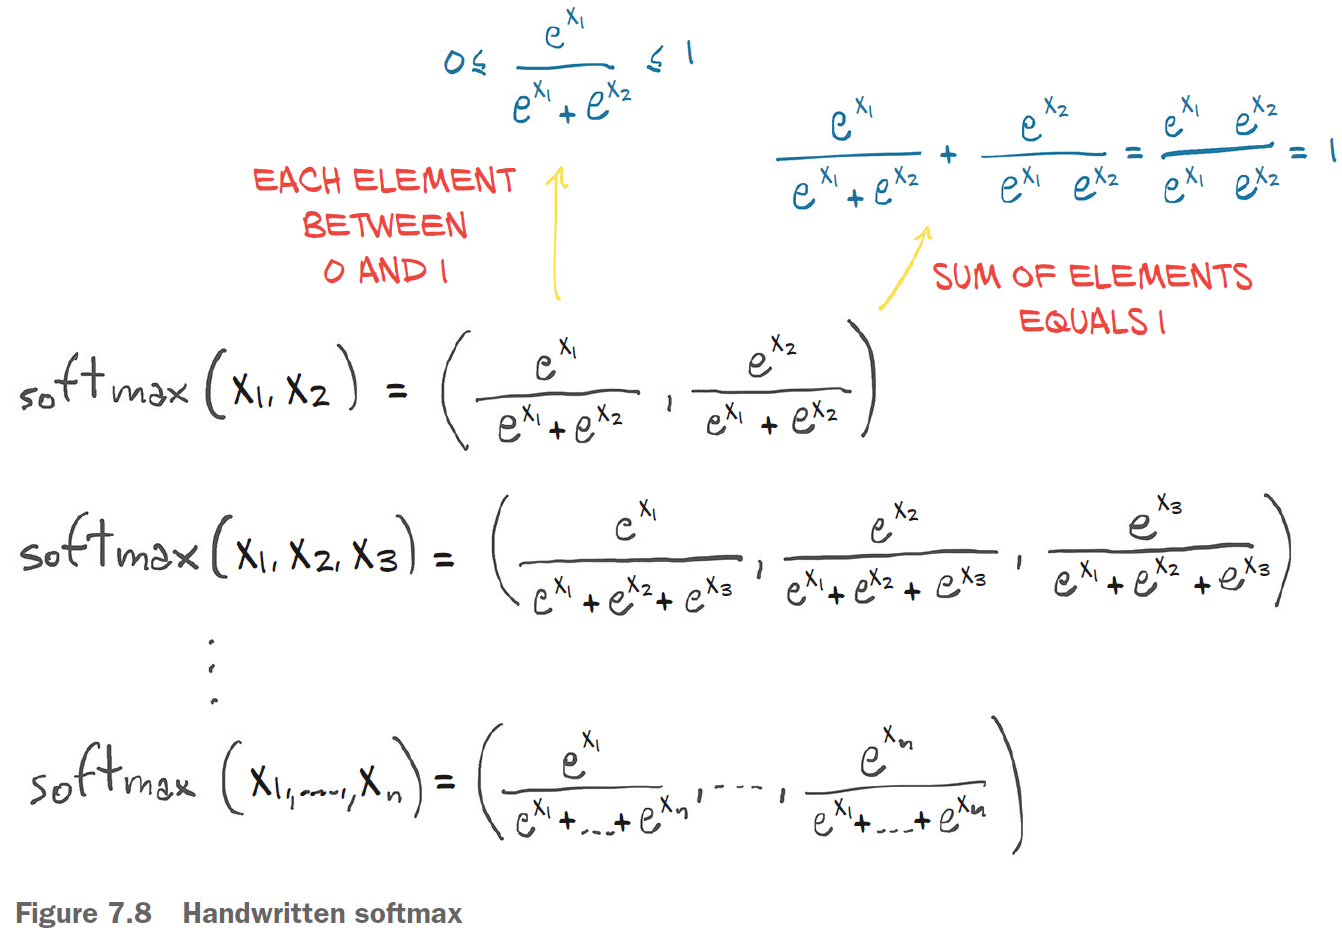 0 ≤ e^x₁ / (e^x₁ + e^x₂) ≤ 1
e^x₁ / (e^x₁ + e^x₂) + e^x₂ / (e^x₁ e^x₂) = (e^x₁ e^x₂) / (e^x₁ e^x₂) = 1
EACH ELEMENT
BETWEEN
0 AND 1
SUM OF ELEMENTS
EQUALS 1
softmax (x₁, x₂) = (e^x₁ / (e^x₁ + e^x₂), e^x₂ / (e^x₁ + e^x₂))
softmax (x₁, x₂, x₃) = (e^x₁ / (e^x₁ + e^x₂ + e^x₃), e^x₂ / (e^x₁ + e^x₂ + e^x₃), e^x₃ / (e^x₁ + e^x₂ + e^x₃))
⋮
softmax (x₁, ..., xₙ) = (e^x₁ / (e^x₁ + ... + e^xₙ), ..., e^xₙ / (e^x₁ + ... + e^xₙ))
Figure 7.8 Handwritten softmax